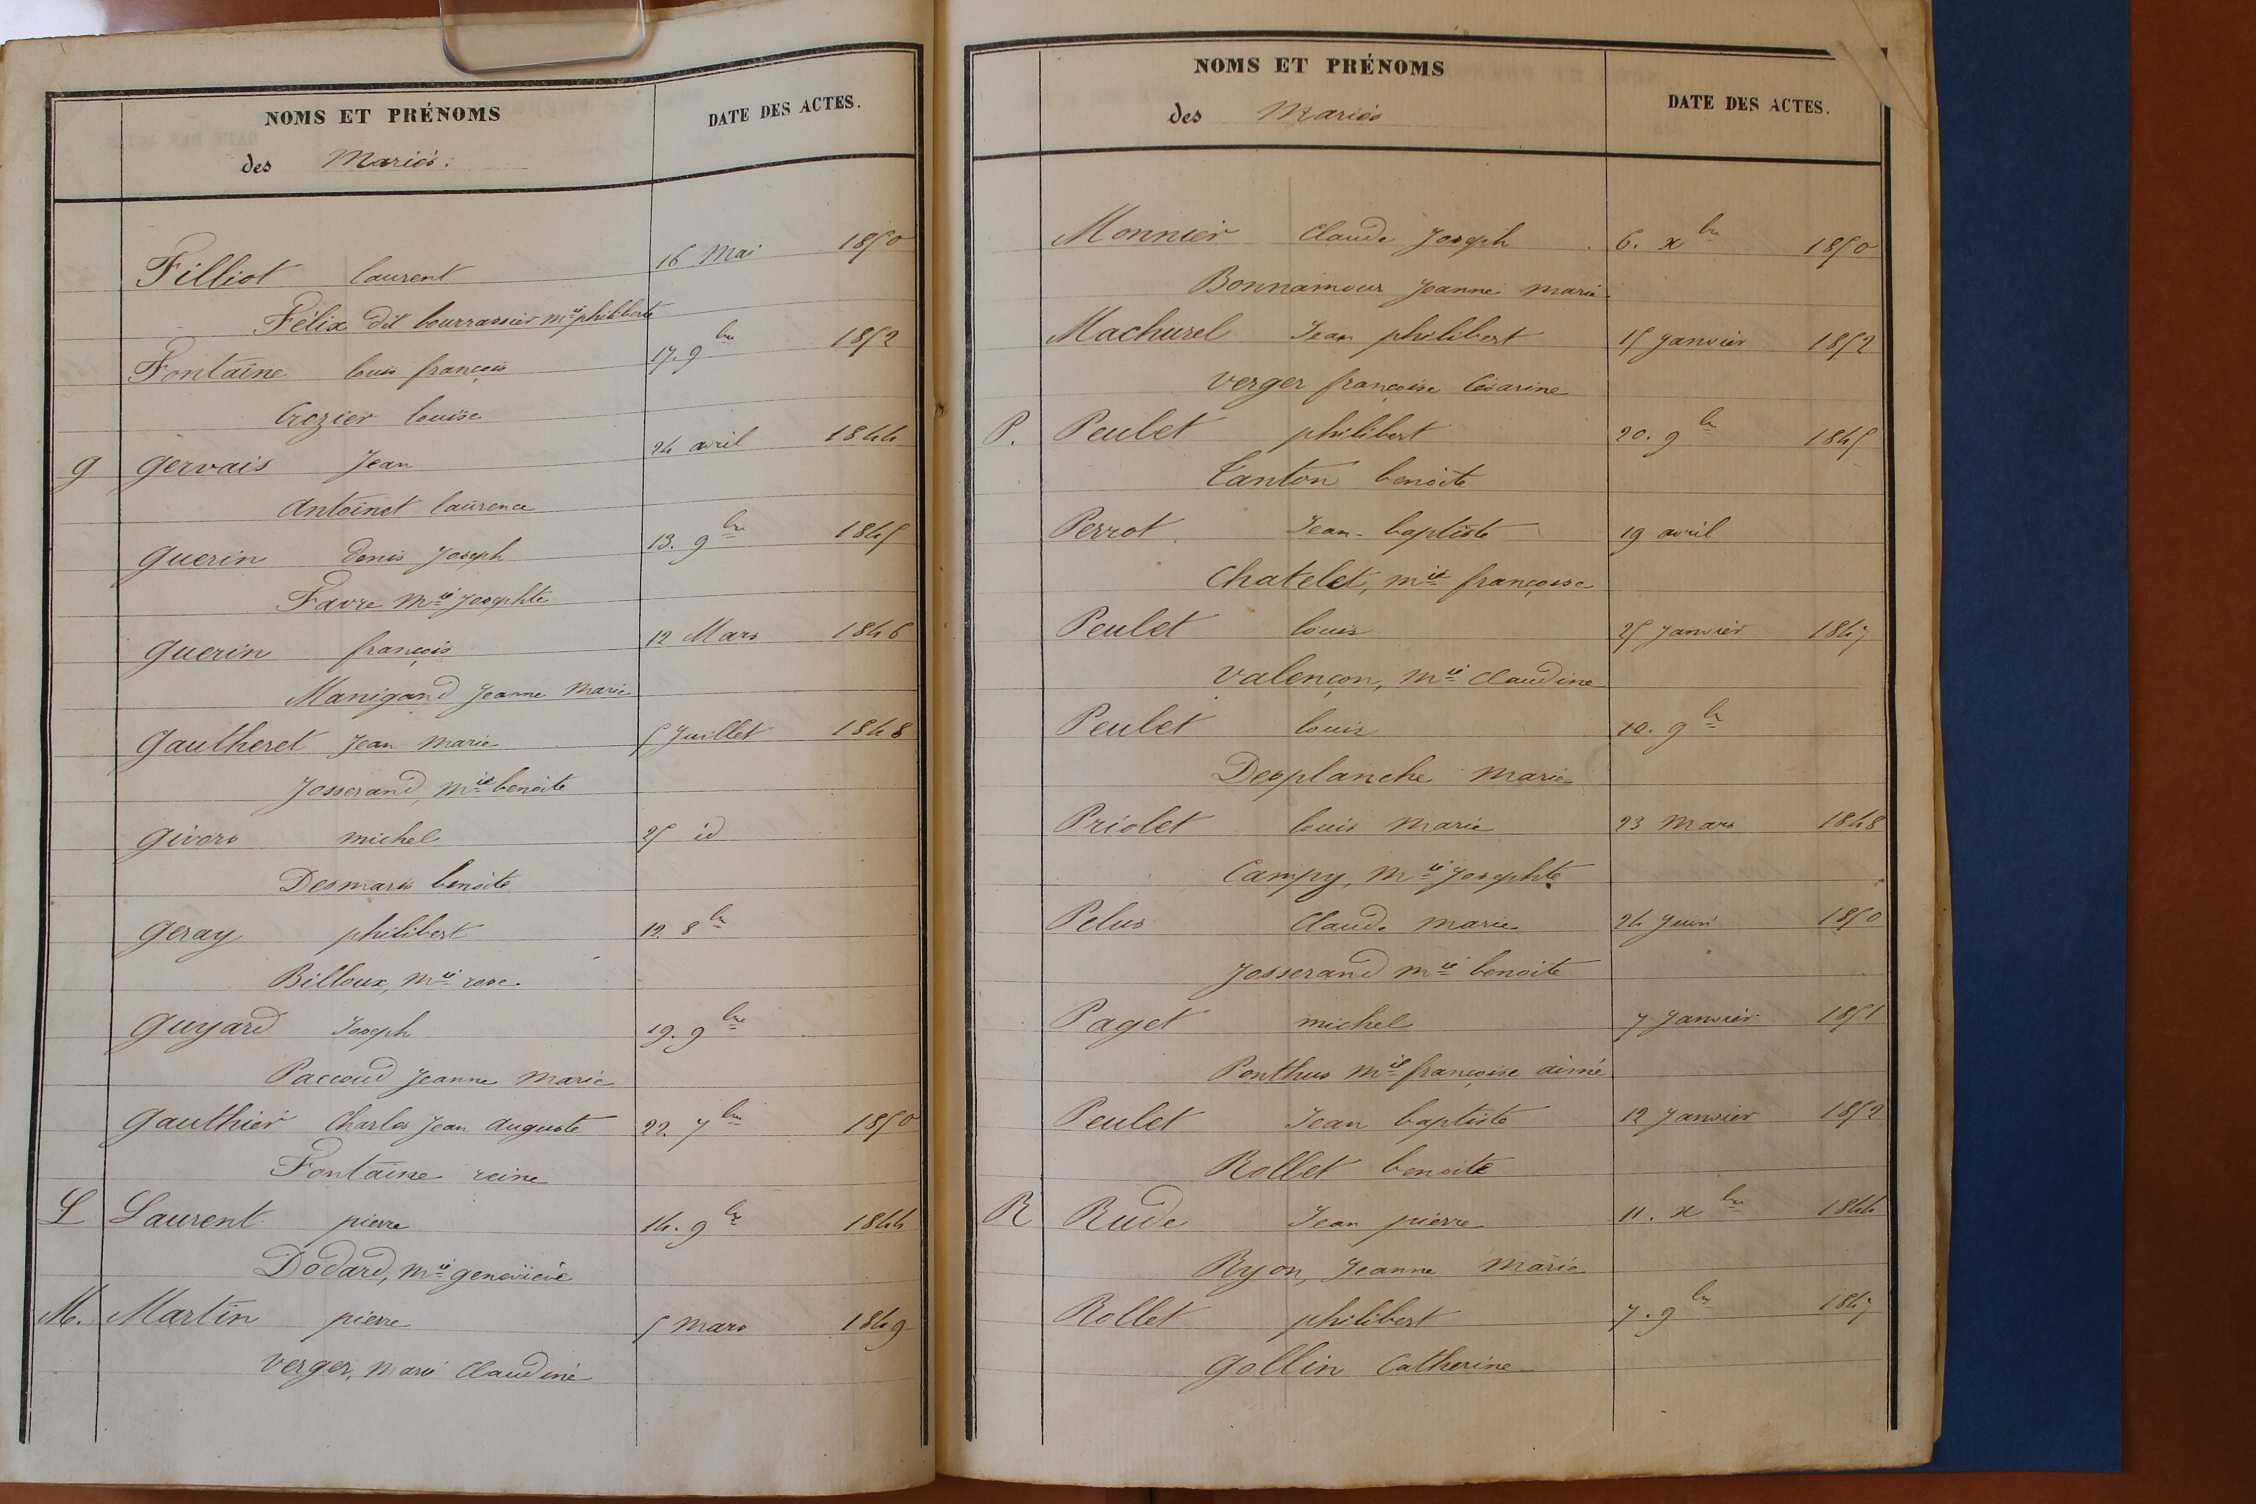 NOMS ET PRÉNOMS
des Mariés.
DATE DES ACTES.
Filliot laurent 16 Mai 1850
Félix dit bourrassier mie philiberte
Fontaine louis françois 17. 9bre 1852
Crozier louise
g gervais Jean 24 avril 1844
Antoinet laurence
guerin denis Joseph 13. 9bre 1845
Favre mie Josephte
guerin françois 12 Mars 1846
Manigand Jeanne Marie
gautheret Jean Marie 5 Juillet 1848
Josserand, mie benoite
givors michel 25 id
Desmaris benoite
geray philibert 12. 8bre
Billoux, mie rose
guyard Joseph 19. 9bre
Paccoud Jeanne Marie
gauthier Charles Jean auguste 22. 7bre 1850
Fontaine reine
L Laurent pierre 14. 9bre 1844
Dodard, mie geneviève
M. Martin pierre 5 Mars 1849
verger, Marie Claudine
NOMS ET PRÉNOMS
des Mariés
DATE DES ACTES.
Monnier Claude Joseph 6. xbre 1850
Bonnamour Jeanne marie
Machurel Jean philibert 15 Janvier 1852
verger françoise Césarine
P. Peulet philibert 20. 9bre 1845
Canton benoite
Perrot Jean-baptiste 19 avril
Chatelet, mie françoise
Peulet louis 25 Janvier 1847
valençon, mie Claudine
Peulet louis 10. 9bre
Desplanche Marie
Priolet louis Marie 23 Mars 1848
Campy, Mie Josephte
Pelus Claude Marie 24 Juin 1850
Josserand mie benoite
Paget michel 7 Janvier 1851
Ponthus mie françoise aimé
Peulet Jean baptiste 12 Janvier 1852
Rollet benoite
R Rude Jean pierre 11. xbre 1844
Ryon, Jeanne Marie
Rollet philibert 7. 9bre 1847
gollin Catherine